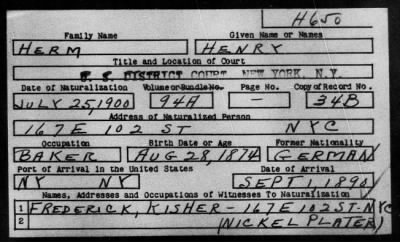 H650
Family Name Given Name or Names
HERM HENRY
Title and Location of Court
U. S. DISTRICT COURT, NEW YORK, N.Y.
Date of Naturalization Volume or Bundle No. Page No. Copy of Record No.
JULY 25, 1900 94A — 34B
Address of Naturalized Person
167 E 102 ST NYC
Occupation Birth Date or Age Former Nationality
BAKER AUG 28, 1874 GERMAN
Port of Arrival in the United States Date of Arrival
NY NY SEPT 1, 1890
Names, Addresses and Occupations of Witnesses To Naturalization
1 FREDERICK, KISHER - 167 E 102 ST - NYC
2 (NICKEL PLATER)